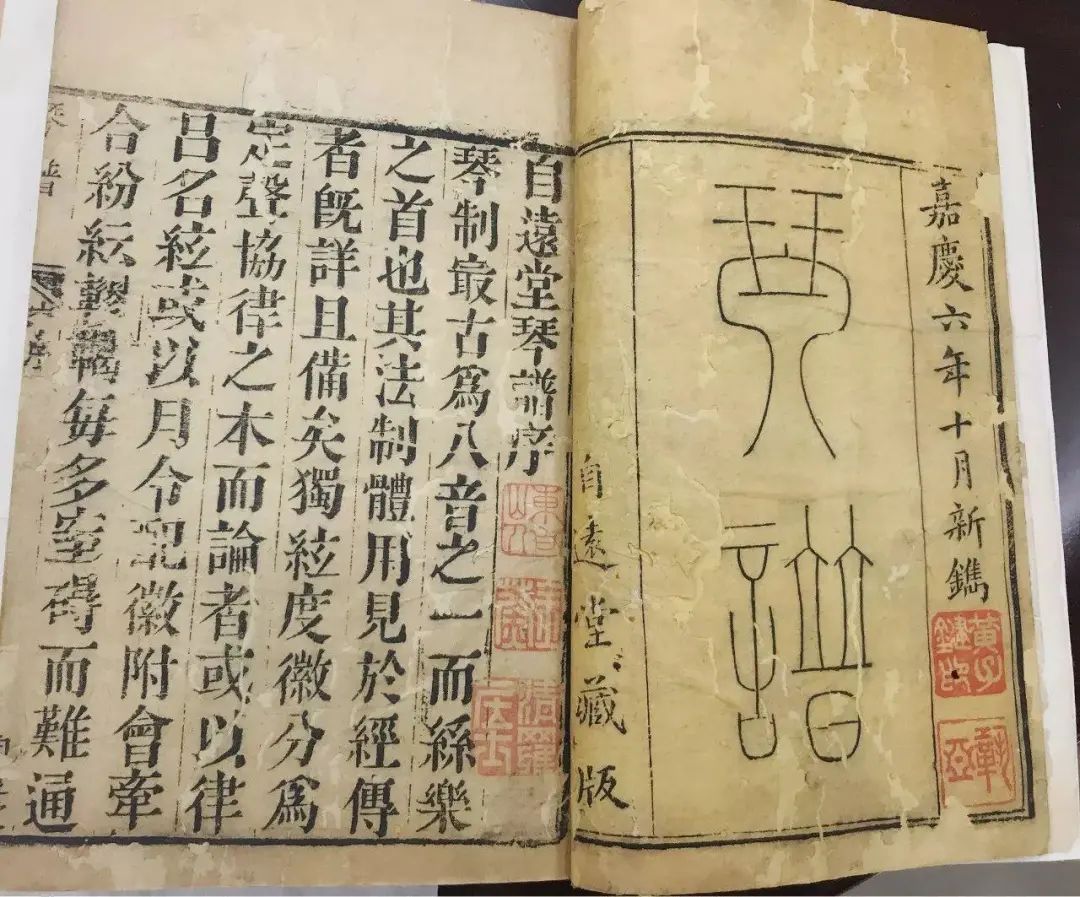 嘉慶六年十月新鐫
琴譜
自遠堂藏版
自遠堂琴譜序
琴制㝡古爲八音之一而絲樂
之首也其法制體用見於經傳
者旣詳且備矣獨絃度徽分爲
定聲協律之本而論者或以律
呂名絃或以月令配徽附會牽
合紛紜轇轕每多窒碍而難通
琴譜